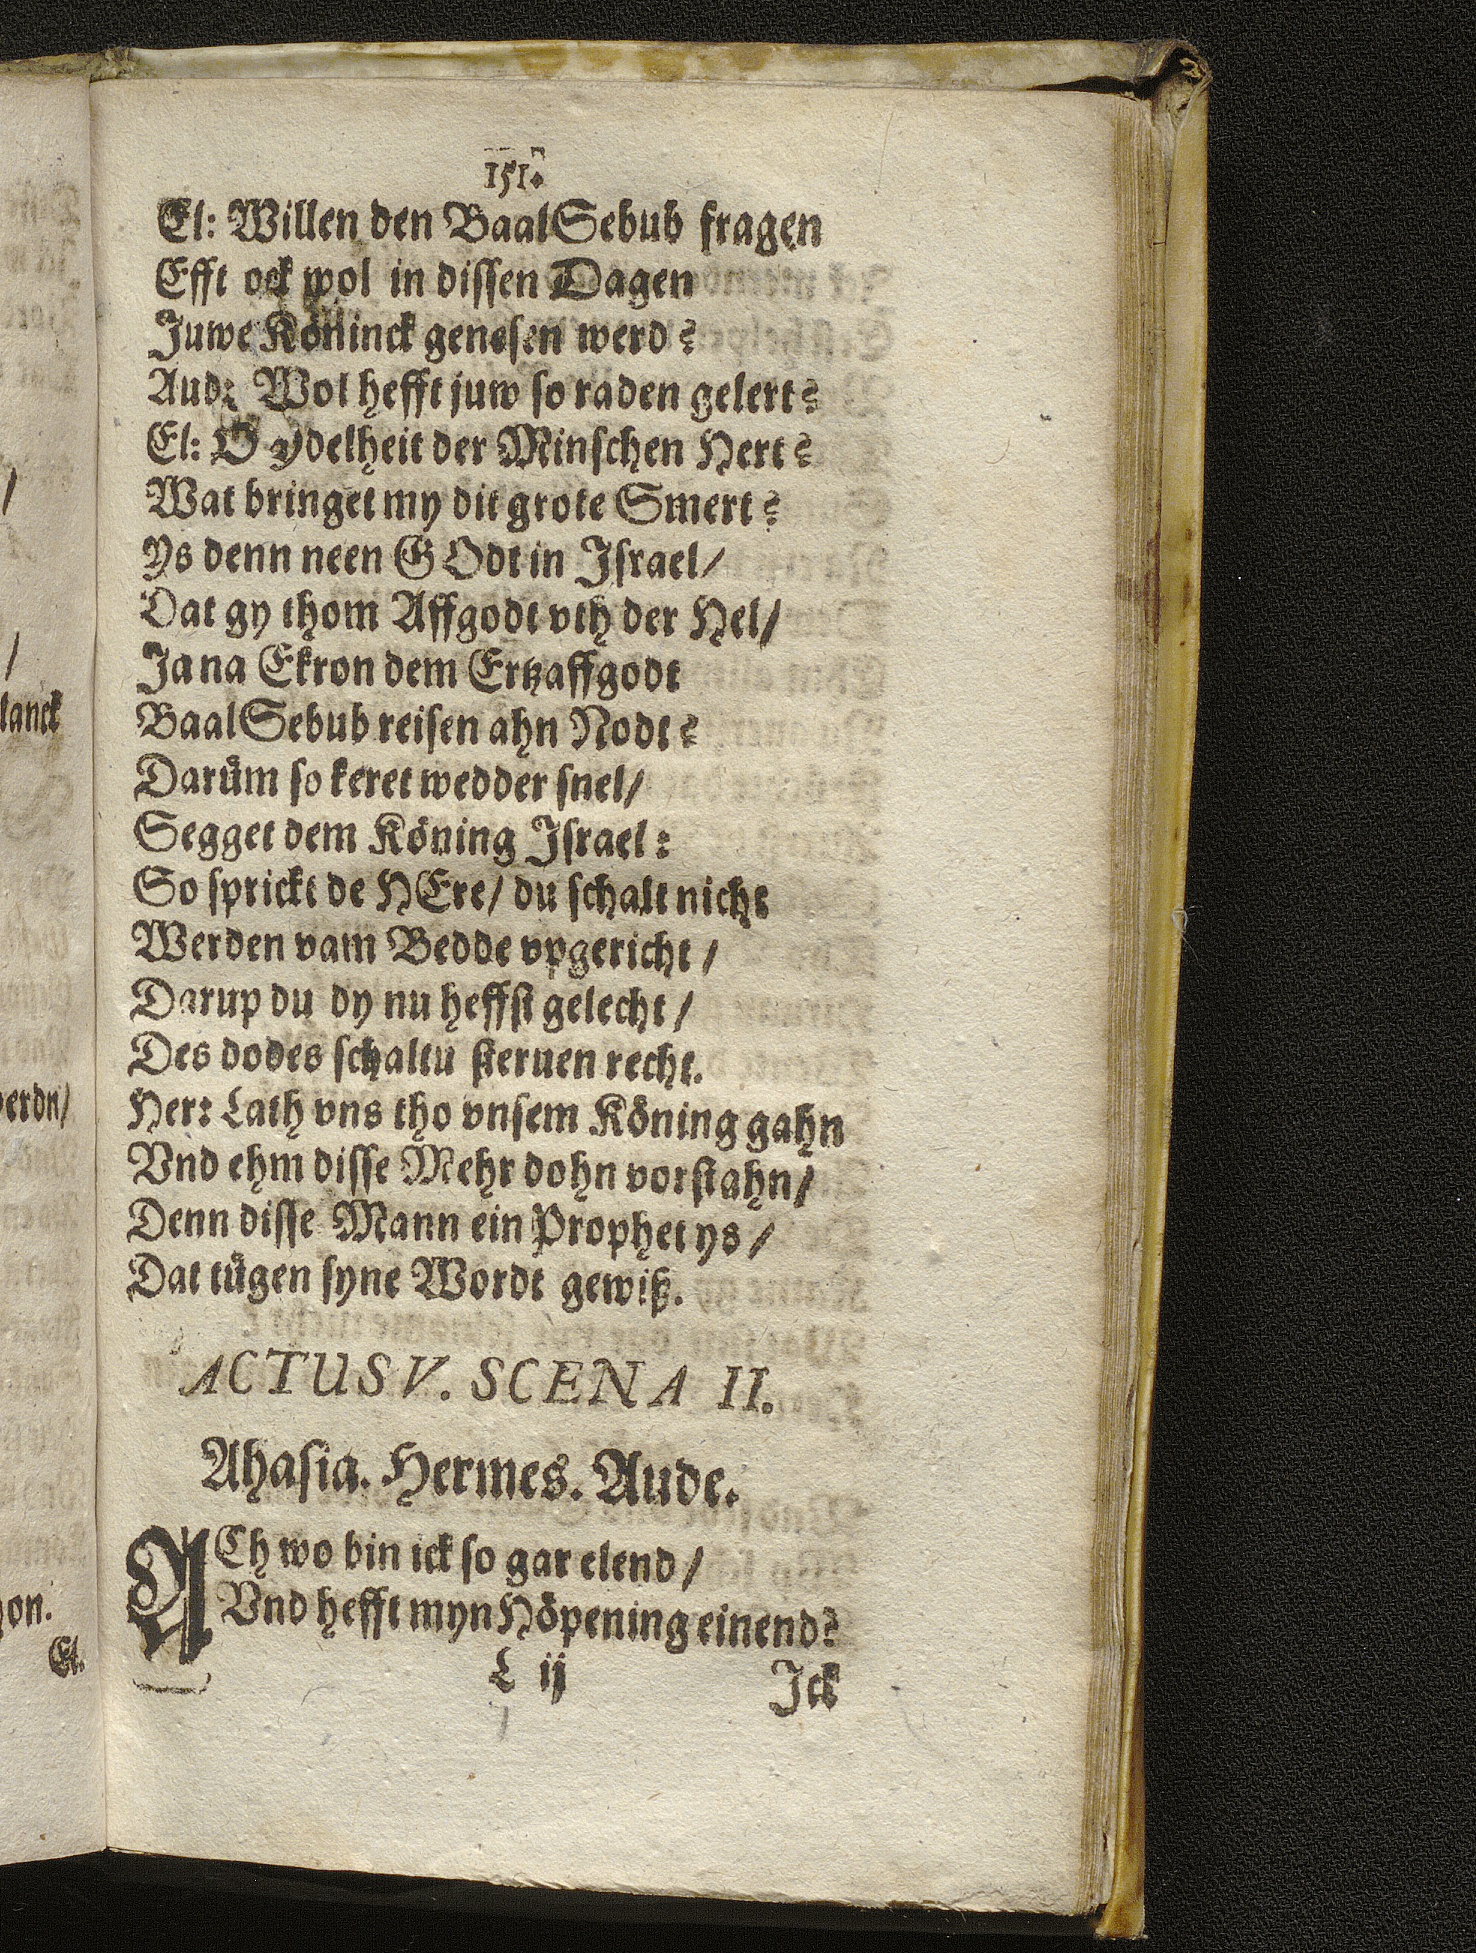 151.
El: Willen den BaalSebub fragen
Efft ock wol in diſſen Dagen
Juwe Köninck geneſen werd?
Aud: Wol hefft juw ſo raden gelert?
El: O ydelheit der Minſchen Hert?
Wat bringet my dit grote Smert?
Ys denn neen GOdt in Iſrael/
Dat gy thom Affgodt vth der Hel/
Ja na Ekron dem Ertzaffgodt
BaalSebub reiſen ahn Nodt?
Darüm ſo keret wedder ſnel/
Segget dem Köning Iſrael:
So ſprickt de HEre/ du ſchalt nicht
Werden vam Bedde vpgericht/
Darup du dy nu heffſt gelecht/
Des dodes ſchaltu ſteruen recht.
Her: Lath vns tho vnſem Köning gahn
Vnd ehm diſſe Mehr dohn vorſtahn/
Denn diſſe Mann ein Prophet ys/
Dat tügen ſyne Wordt gewiß.
ACTUS V. SCENA II.
Ahaſia. Hermes. Aude.
ACh wo bin ick ſo gar elend/
Vnd hefft myn Höpening ein end?
L ij
Ick
lanck
erdn/
on.
El.